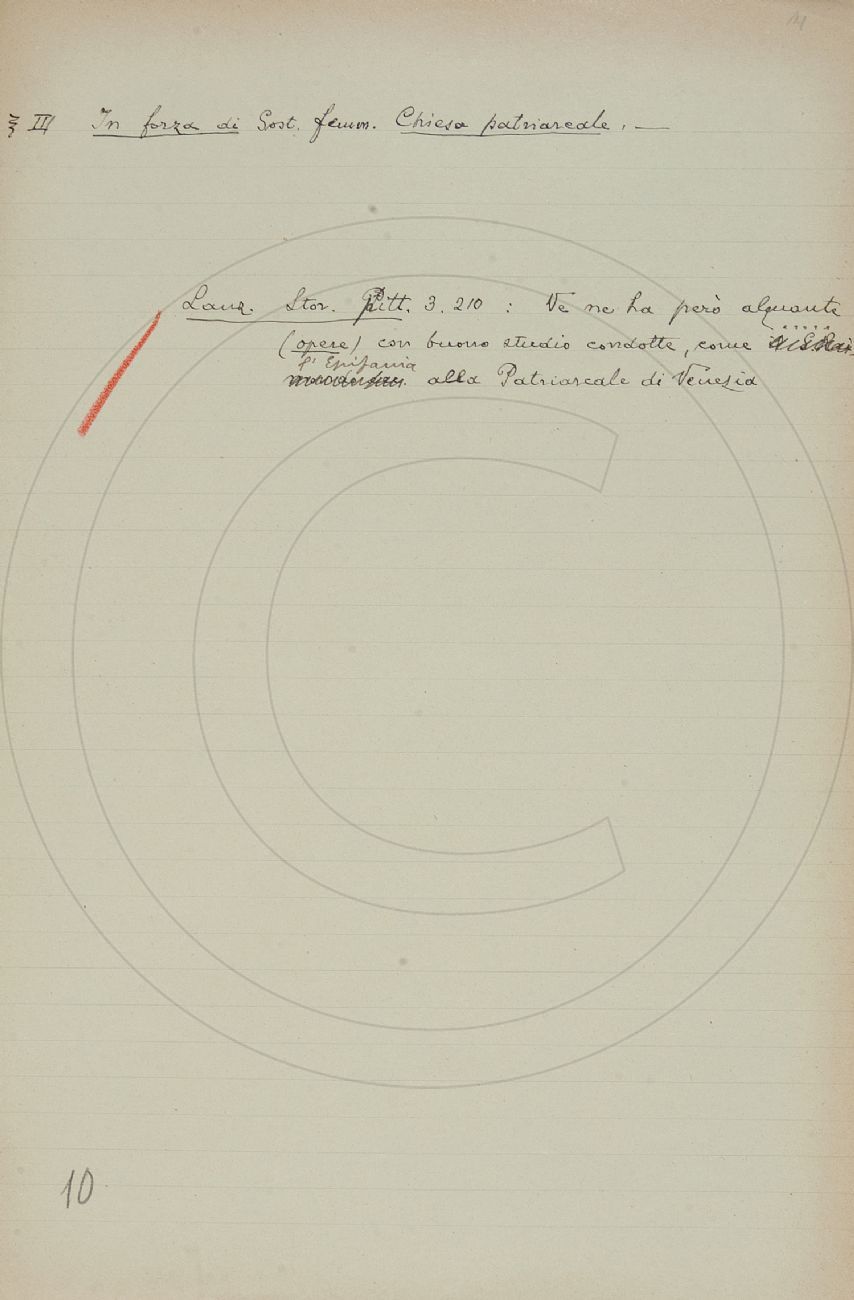 § III In forza di Sost. femm. Chiesa patriarcale. —
Lanz. Stor. Pitt. 3. 210 : Ve ne ha però alquante
(opere) con buono studio condotte, come
l'Epifania
alla Patriarcale di Venezia
10